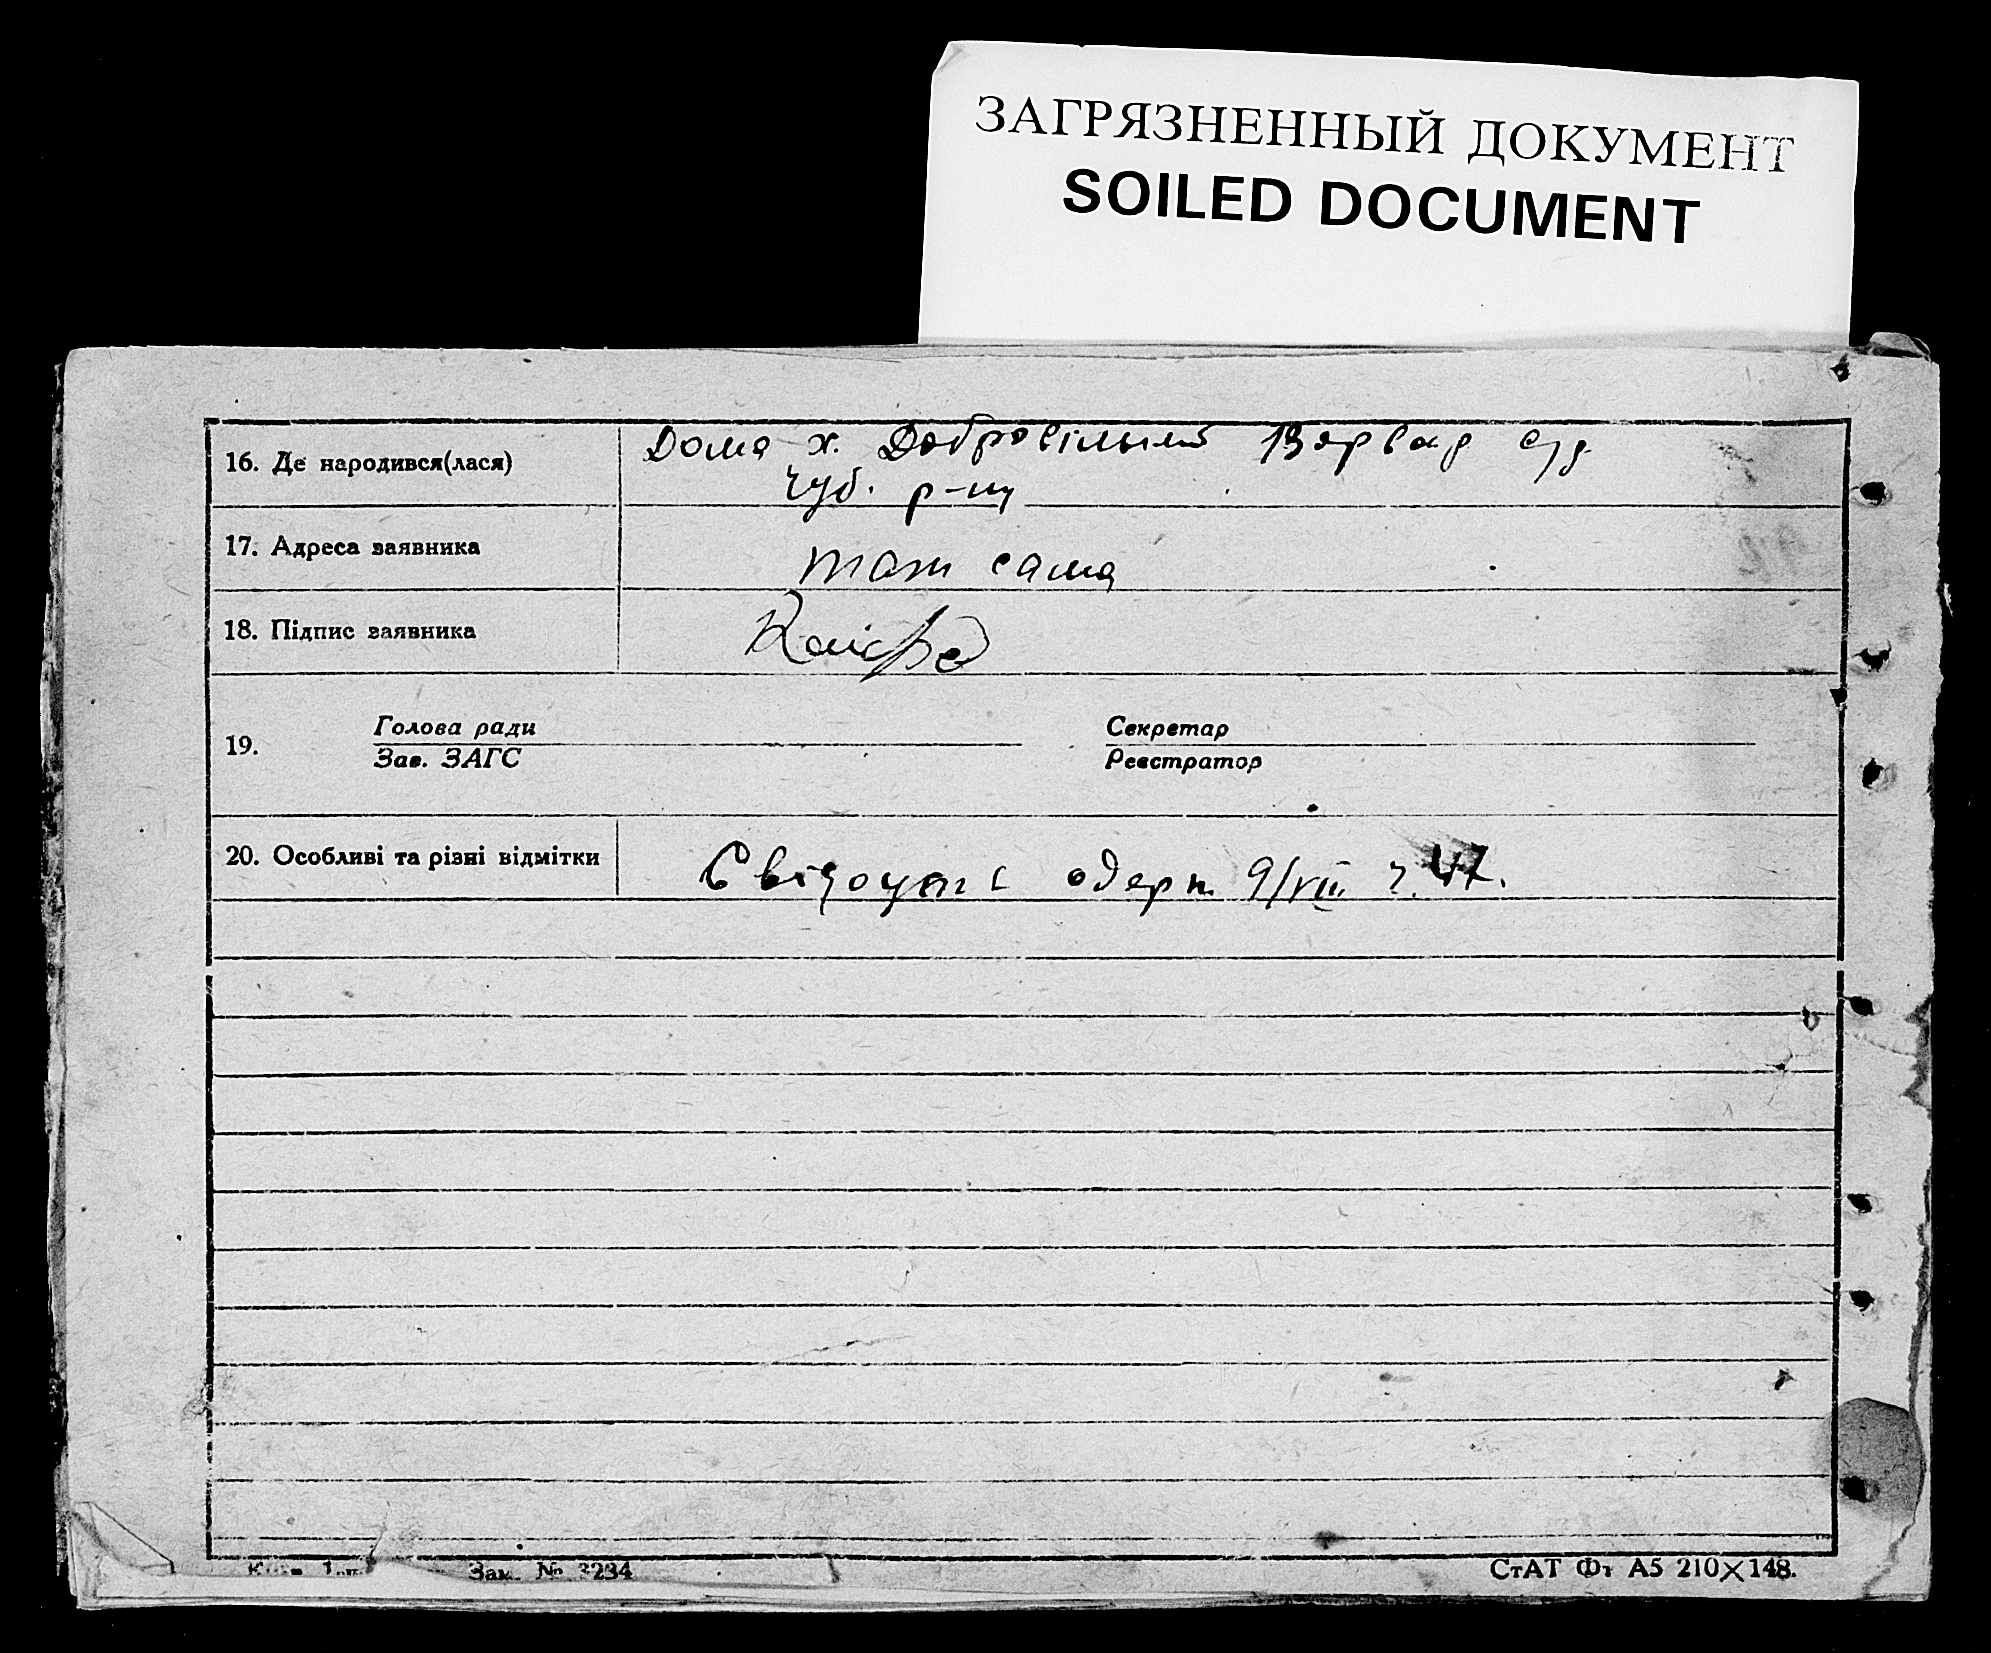 ЗАГРЯЗНЕННЫЙ ДОКУМЕНТ
SOILED DOCUMENT
16. Де народився(лася) Дома х. Добровільний Варвар с/р
Чуб. р-ну
17. Адреса заявника таж сама
18. Підпис заявника
19. Голова ради Секретар
Зав. ЗАГС Реєстратор
20. Особливі та різні відмітки Свідоцт одерж 9/VIII г. 47.
Зам. № 3234 СтАТ Фт А5 210×148.